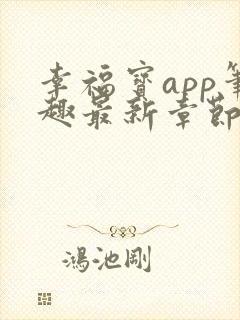 幸福寳app筆
趣最新章節
鴻池剛